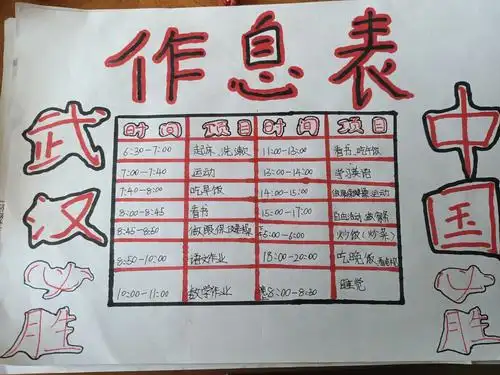 作息表
武汉必胜
中国必胜
时间 项目 时间 项目
6:30-7:00 起床、洗漱 11:00-13:00 看书、吃午饭
7:00-7:40 运动 13:00-14:00 学习英语
7:40-8:00 吃早饭 14:00-15:00 运动
8:00-8:45 看书 15:00-17:00 自由活动
8:45-8:50 做眼保健操 5:00-6:00 炒饭(炒菜)
8:50-10:00 语文作业 18:00-20:00 吃晚饭
10:00-11:00 数学作业 8:00-8:30 睡觉